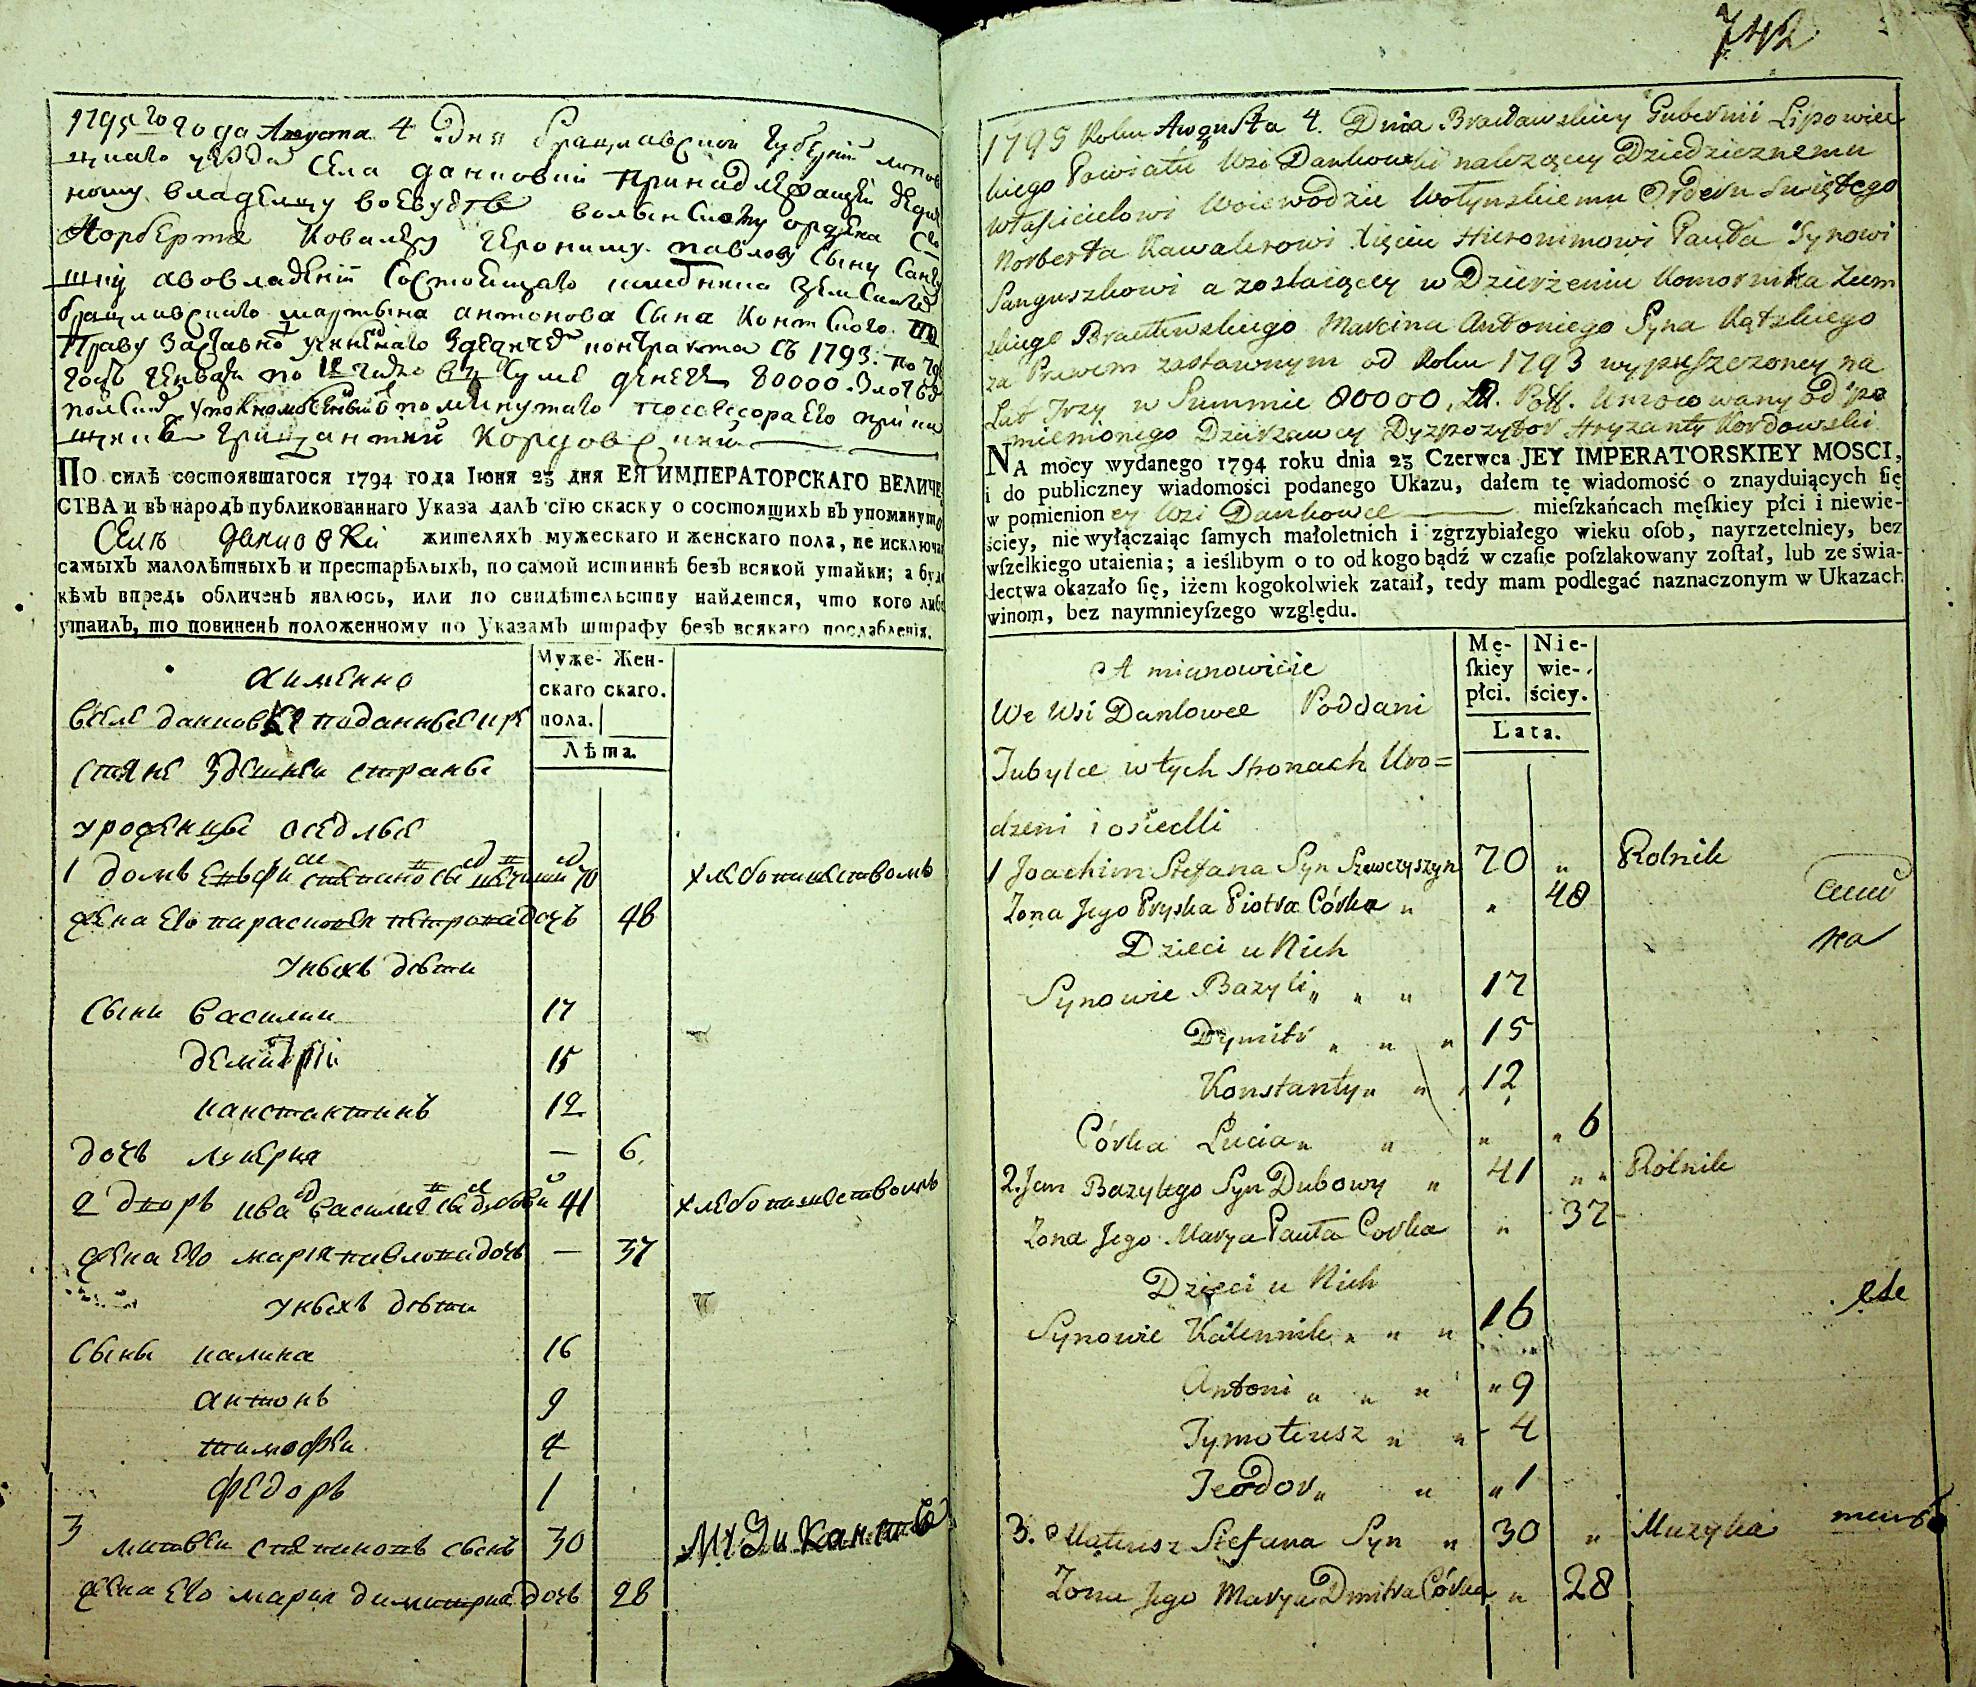 1795 го года Августа 4 Дня Брацлавской Губернии липов
ецкаго уезда Села данковки принадлежащей дедич
ному владельцу воеводе волынскому ордена Свя
Норберта Ковалеру Герониму павлову Сыну Сангу
шку а во владении Состоящаго
брацлавскаго мартына антонова Сына Контского по
праву Заставно контракта съ 1793. по 79
годъ в Суме денегъ 80000. Злотыхъ
польскихъ упомянутаго поссессора Его прика
щикъ
ПО силѣ состоявшагося 1794 года Іюня 23 дня ЕЯ ИМПЕРАТОРСКАГО ВЕЛИЧЕ
СТВА и въ народъ публикованнаго Указа далъ сію скаску о состоящихъ въ упомянуто
Селѣ данковки жителяхъ мужескаго и женскаго пола, не исключая
самыхъ малолѣтныхъ и престарѣлыхъ, по самой истиннѣ безъ всякой утайки; а буде
кѣмъ впредь обличенъ явлюсь, или по свидѣтельству найдется, что кого либо
утаилъ, то повиненъ положенному по Указамъ штрафу безъ всякаго послабленія.
Муже- Жен-
скаго скаго.
пола.
Лѣта.
а именно
в селе данковке поданные кре
стяне Здешней страны
уроженцы оседлые
1 домъ 70 хлебопашествомъ
жена Его параскевя петрова дочъ 48
У ныхъ дети
Сыни Василии 17
демитрїй 15
констактинъ 12
дочъ лукерия — 6.
2 дворъ ива Василиев сы дубови 41 хлебопашествомъ
жена Его мария павлова дочъ — 37
У ныхъ дети
Сыны калина 16
антонъ 9
тимофеи 4
Федоръ 1
3 матвеи степановъ сынъ 30 Музикантъ
жена Его мария димитриа дочъ 28
742
1795 Roku Augusta 4. Dnia Bracławskiey Gubernii Lipowiec
kiego Powiatu Wsi Dankowki należącey Dziedzicznemu
Właścicielowi Woiewodzie Wołynskiemu Orderu Swiętego
Norberta Kawalerowi Xięciu Hieronimowi Pawła Synowi
Sanguszkowi a zostaiącey w Dzierżeniu Komornika Ziem
skiego Bracławskiego Marcina Antoniego Syna Kątskiego
za Prawem zastawnym od Roku 1793 wypuszczoney na
Lat Trzy w Summie 80000, Zł. Pols. Umocowany od po
mienionego Dzierzawcy Dyzpozytor Hryzanty Kordowski
NA mocy wydanego 1794 roku dnia 23 Czerwca JEY IMPERATORSKIEY MOSCI,
i do publiczney wiadomości podanego Ukazu, dałem tę wiadomość o znayduiących się
w pomienioney Wsi Dankowce mieszkańcach męskiey płci i niewie-
ściey, nie wyłączaiąc samych małoletnich i zgrzybiałego wieku osob, nayrzetelniey, bez
wszelkiego utaienia; a ieślibym o to od kogo bądź w czasie poszlakowany został, lub ze świa-
dectwa okazało się, iżem kogokolwiek zataił, tedy mam podlegać naznaczonym w Ukazach
winom, bez naymnieyszego względu.
Mę- Nie-
skiey wie-
płci. ściey.
Lata.
A mianowicie
We Wsi Dankowce Poddani
Tubylce w tych stronach Uro=
dzeni i osiedli
1 Joachim Stefana Syn Szewczyszyn 70 „ Rolnik
Zona Jego Pryska Piotra Córka „ „ 48
Dzieci u Nich
Synowie Bazyli „ „ „ 17
Dymitr „ „ „ 15
Konstanty „ „ „ 12
Córka Lucia „ „ „ „ 6
2. Jan Bazylego Syn Dubowy „ 41 „ „ Rolnik
Zona Jego Marya Pawła Corka „ 37
Dzieci u Nich
Synowie Kalennik „ „ „ 16
Antoni „ „ „ „ 9
Tymoteusz „ „ - 4
Teodor „ „ „ 1
3. Mateusz Stefana Syn „ 30 „ Muzyka
Zona Jego Marya Dmitra Córka „ 28